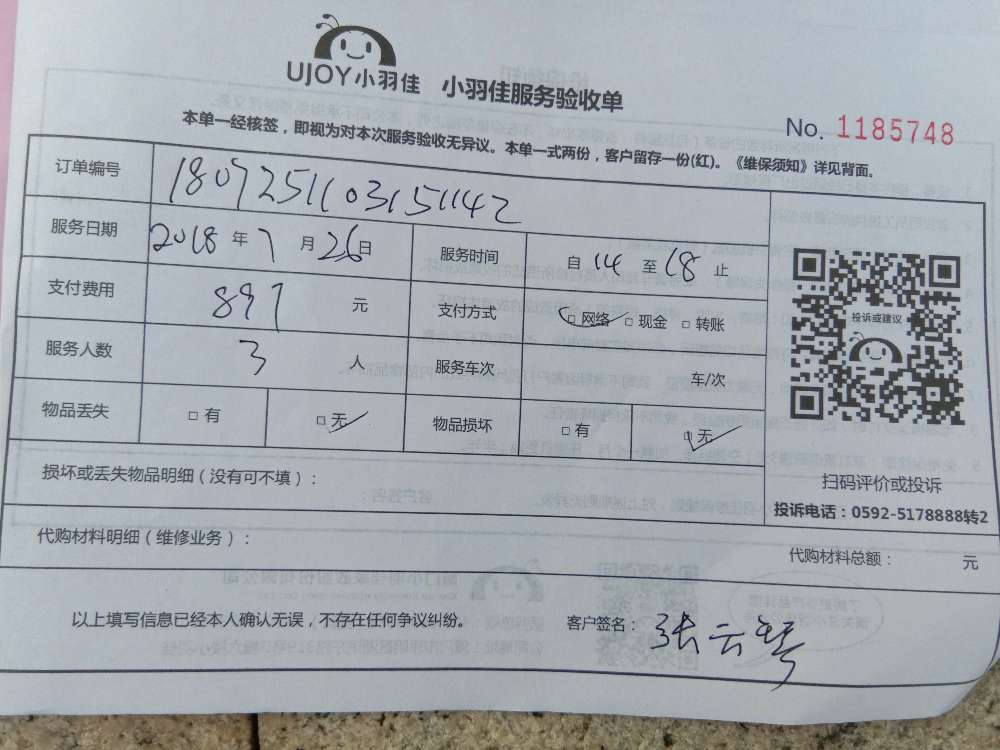 UJOY小羽佳 小羽佳服务验收单
No. 1185748
本单一经核签，即视为对本次服务验收无异议。本单一式两份，客户留存一份(红)。《维保须知》详见背面。
订单编号 1807251103151142
服务日期 2018年7月26日 服务时间 自14至18止
支付费用 897元 支付方式 □网络 □现金 □转账
服务人数 3人 服务车次 车/次
物品丢失 □有 □无 物品损坏 □有 □无
投诉或建议
扫码评价或投诉
损坏或丢失物品明细（没有可不填）：
投诉电话：0592-5178888转2
代购材料明细（维修业务）：
代购材料总额： 元
以上填写信息已经本人确认无误，不存在任何争议纠纷。
客户签名：张云